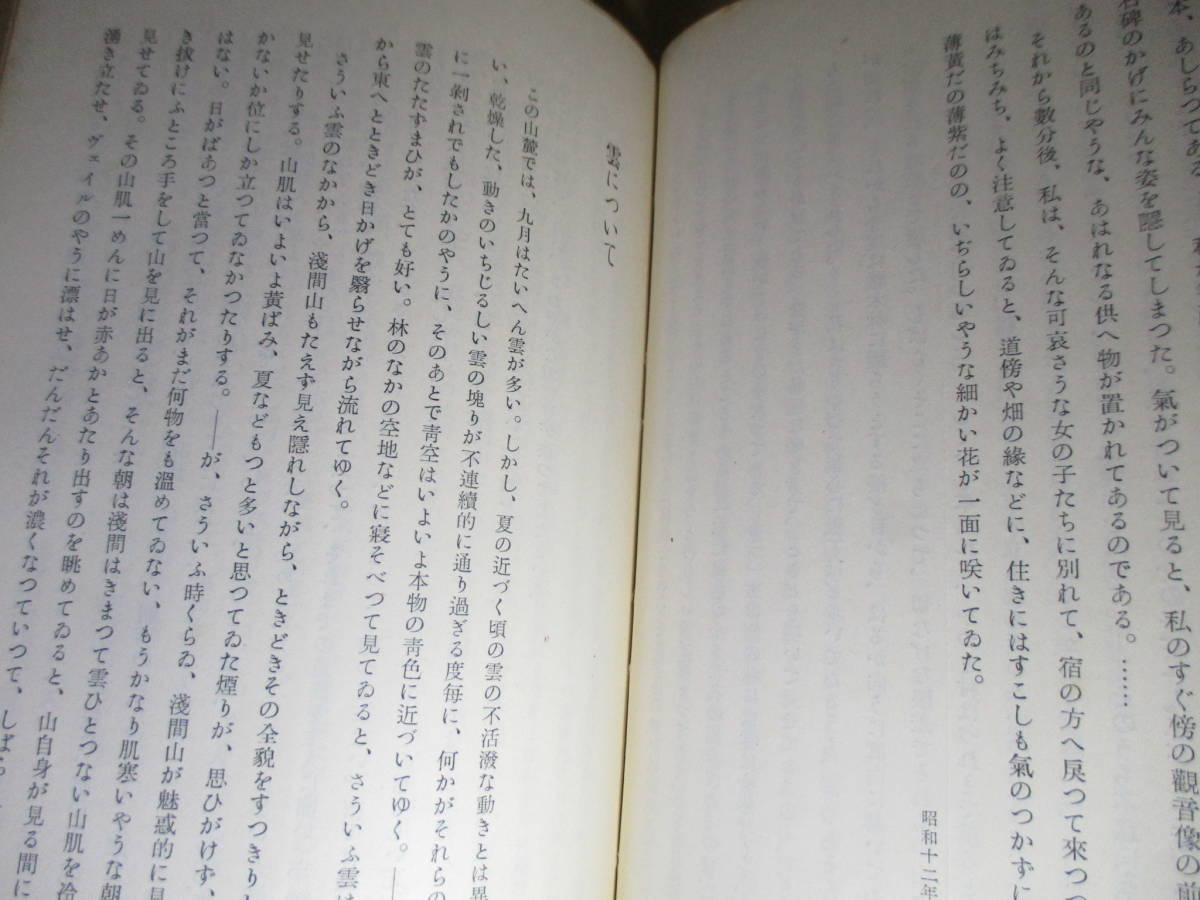 本、あしらつてある
石碑のかげにみんな姿を隱してしまつた。氣がついて見ると、私のすぐ傍の觀音像の前
あるのと同じやうな、あはれなる供へ物が置かれてあるのである。……
それから數分後、私は、そんな可哀さうな女の子たちに別れて、宿の方へ戾つて來つつ
はみちみち、よく注意してゐると、道傍や畑の緣などに、往きにはすこしも氣のつかずに
薄黃だの薄紫だのの、いぢらしいやうな細かい花が一面に咲いてゐた。
昭和十二年
雲について
この山麓では、九月はたいへん雲が多い。しかし、夏の近づく頃の雲の不活潑な動きとは異
い、乾燥した、動きのいちじるしい雲の塊りが不連續的に通り過ぎる度每に、何かがそれらの
に一剝されでもしたかのやうに、そのあとで靑空はいよいよ本物の靑色に近づいてゆく。――
雲のたたずまひが、とても好い。林のなかの空地などに寢そべつて見てゐると、さういふ雲は
から東へとときどき日かげを翳らせながら流れてゆく。
さういふ雲のなかから、淺間山もたえず見え隱れしながら、ときどきその全貌をすつきり
見せたりする。山肌はいよいよ黃ばみ、夏などもつと多いと思つてゐた煙りが、思ひがけず、
かないか位にしか立つてゐなかつたりする。――が、さういふ時くらゐ、淺間山が魅惑的に見
はない。日がぱあつと當つて、それがまだ何物をも溫めてゐない、もうかなり肌寒いやうな朝
き拔けにふところ手をして山を見に出ると、そんな朝は淺間はきまつて雲ひとつない山肌を冷
見せてゐる。その山肌一めんに日が赤あかとあたり出すのを眺めてゐると、山自身が見る間に
湧き立たせ、ヴェイルのやうに漂はせ、だんだんそれが濃くなつていつて、しばら